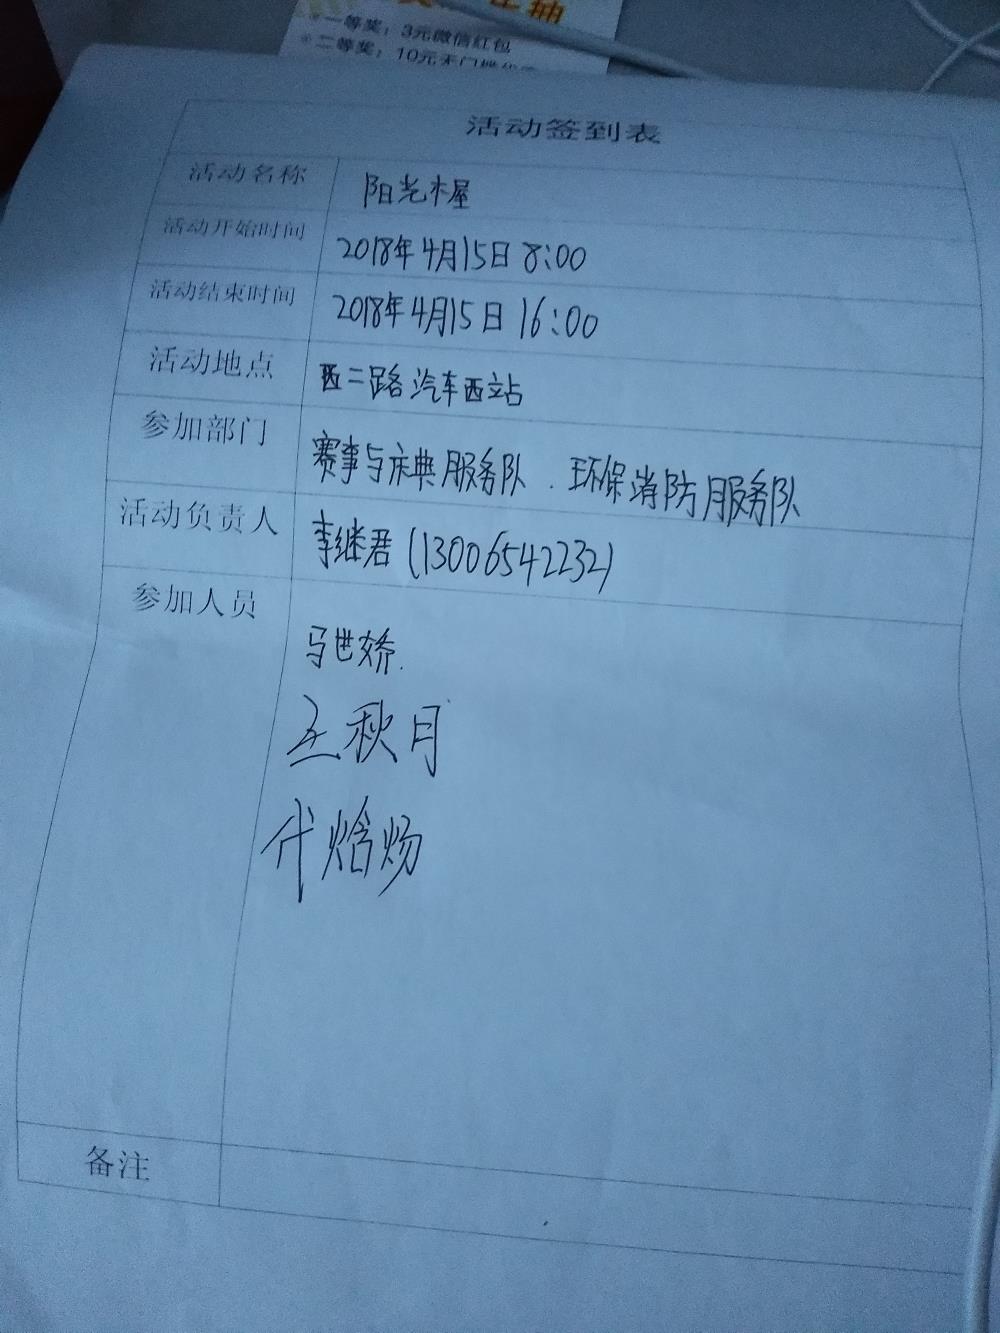 一等奖：3元微信红包
二等奖：10元天门
活动签到表
活动名称 阳光木屋
活动开始时间 2018年4月15日 8:00
活动结束时间 2018年4月15日 16:00
活动地点 西二路汽车西站
参加部门 赛事与庆典服务队、环保消防服务队
活动负责人 李继君(13006542232)
参加人员
马世娇.
王秋月
代焓炀
备注